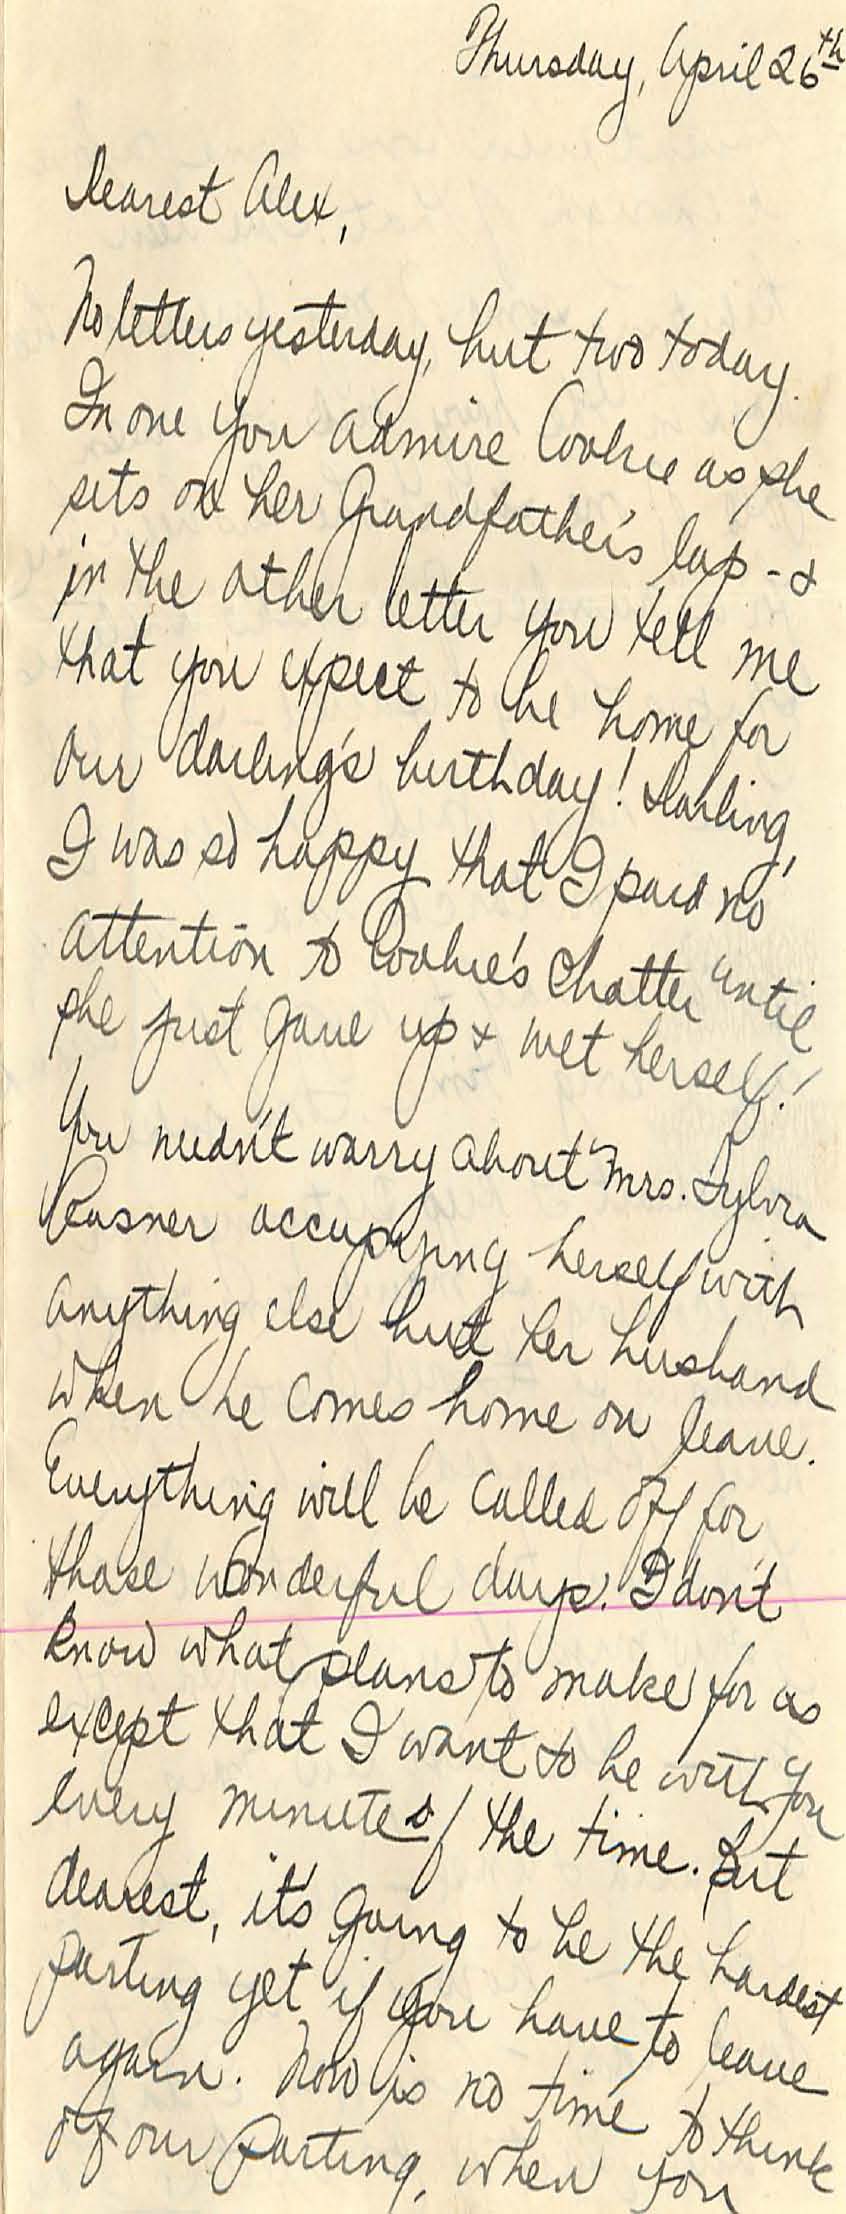 Thursday, April 26th
Dearest Alex,
No letters yesterday, but two today.
In one you admire Cookie as she
sits on her Grandfather's lap - &
in the other letter you tell me
that you expect to be home for
our darling's birthday! Darling,
I was so happy that I paid no
attention to Cookie's chatter until
she just gave up & wet herself!
You needn't worry about Mrs. Sylvia
Rasner occupying herself with
anything else but her husband
when he comes home on leave.
Everything will be called off for
those wonderful days. I don't
know what plans to make for us
except that I want to be with you
every minute of the time. But
dearest, it's going to be the hardest
parting yet if you have to leave
again. Now is no time to think
of our parting, when you